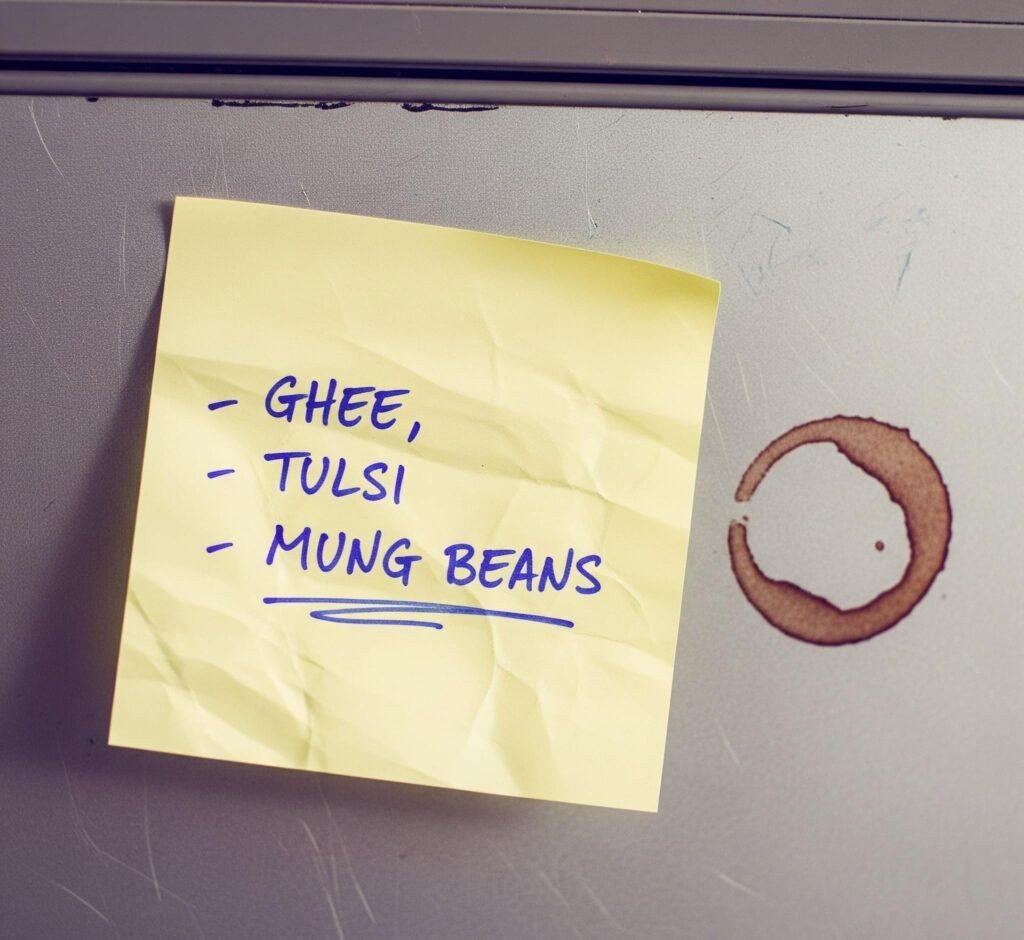 - GHEE,
- TULSI
- MUNG BEANS